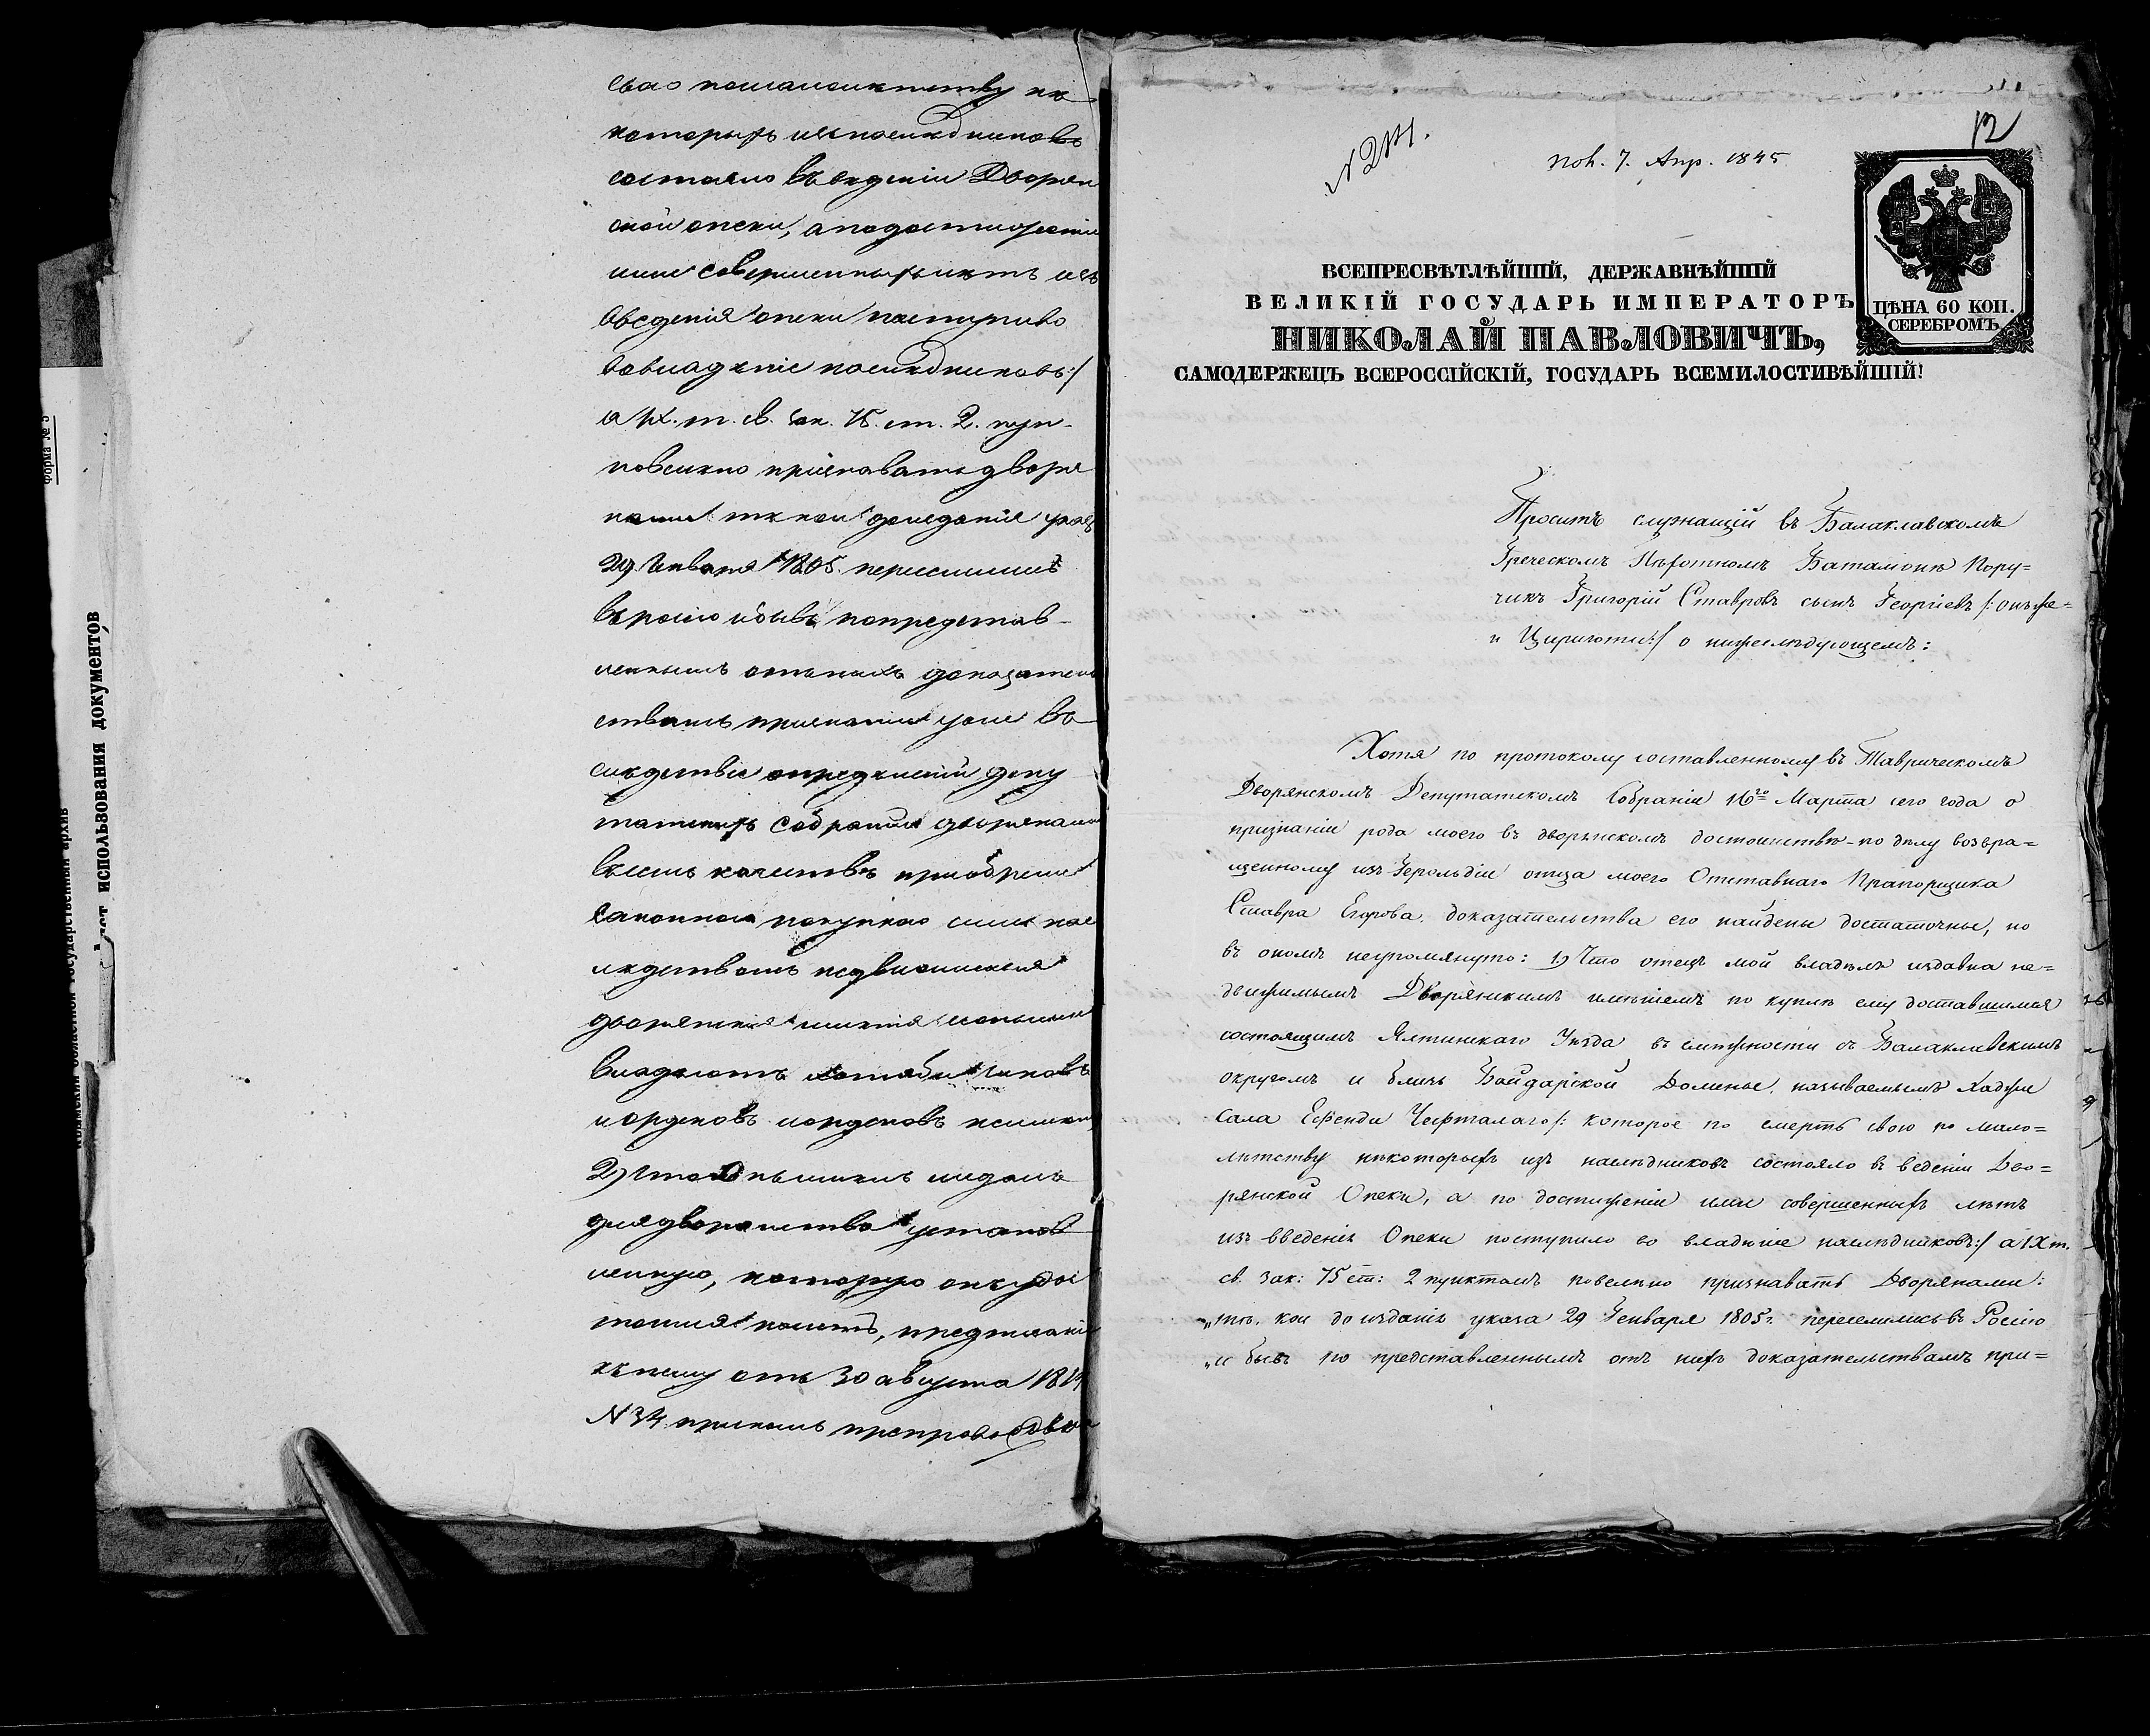 свою по малолетству не
которыхъ изъ наследниковъ
состояло въ ведении Дворян
ской опеки, а по достижении
ими совершенныхъ летъ изъ
введения опеки поступило
во владение наследниковъ:/
а IX. т. св. зак. 75. ст. 2. пун.
повелено признавать дворя
нами те кои до издания указа
29 Января 1805. переселились
въ россию и бывъ по представ-
леннымъ отъ нихъ доказатель
ствамъ признаны уже во
следствие определений депу
татскихъ собраний дворянами
въ семъ качестве приобрели
законною покупкою или нас
ледствомъ недвижимыя
дворянския имения и оными
владеютъ хотя бы чиновъ
и орденовъ неимели
2) что онъ имелъ медаль
для дворянства установ
ленную, которую онъ удос
тоился носить, предписание
къ нему отъ 30 августа 1814
N 34 при коемъ препровожде
Форма № 5
использования документов
государственный архив
N
12
пол. 7. Апр. 1845
ЦѢНА 60 КОП.
СЕРЕБРОМЪ
ВСЕПРЕСВѢТЛѢЙШІЙ, ДЕРЖАВНѢЙШІЙ
ВЕЛИКІЙ ГОСУДАРЬ ИМПЕРАТОРЪ
НИКОЛАЙ ПАВЛОВИЧЪ,
САМОДЕРЖЕЦЪ ВСЕРОССІЙСКІЙ, ГОСУДАРЬ ВСЕМИЛОСТИВѢЙШІЙ!
Проситъ служащій въ Балаклавскомъ
Греческомъ Пѣхотномъ Баталіонѣ Пору=
чикъ Григорій Ставровъ сынъ Георгіевъ /: онъ же=
и Цириготи:/ о нижеслѣдующемъ:
Хотя по протоколу составленному въ Таврическомъ
Дворянскомъ Депутатскомъ Собраніи 16го Марта сего года о
признаніи рода моего въ дворянскомъ достоинствѣ - по дѣлу возвра=
щенному изъ Герольдіи отца моего Отставнаго Прапорщика
Ставра Егорова, доказательства его найдены достаточные, но
въ ономъ неупомянуто: 1) Что отецъ мой владѣлъ издавна не=
движимымъ Дворянскимъ имѣніемъ по куплѣ ему доставшимся
состоящимъ Ялтинскаго Уѣзда въ смѣжности съ Балаклавскимъ
округомъ и близь Байдарской Долины, называемымъ Хаджи
Сала Ефенди /: которое по смерть свою по мало=
лѣтству нѣкоторыхъ изъ наслѣдниковъ состояло въ ведѣніи Дво=
рянской Опеки, а по достиженіи ими совершенныхъ лѣтъ
изъ введенія Опеки поступило во владѣніе наслѣдниковъ:/ а IX т.
св. зак: 75 ст: 2 пунктомъ повелѣно признавать Дворянами:
„тѣ, кои до изданія указа 29 Генваря 1805 г. переселились въ Россію
„и бывъ по представленнымъ отъ нихъ доказательствамъ при=